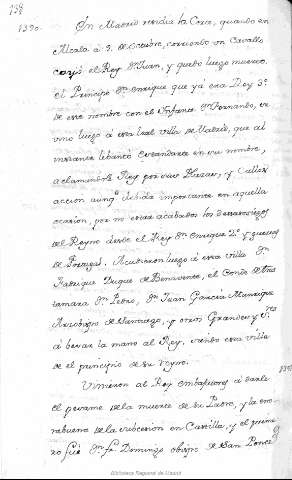 138
1390. En Madrid residia la Corte, quando en
Alcala á 9. de Octubre, corriendo un Cavallo
cayó el Rey Dn. Juan, y quedo luego muerto.
El Principe Dn. Enrique que ya era Rey 3º.
de este nombre con el Infante Dn. Fernando, se
vino luego á esta leal villa de Madrid, que al
instante lebantó Estandarte en su nombre,
aclamandole Rey por sus Plazas, y Calles
accion aunqe. debida importante en aquella
ocasion, por no estar acabados los desasosiegos
del Reyno desde el Rey Dn. Enrique 2º. y guerras
de Portugal. Acudieron luego á esta villa Dn.
Fadrique Duque de Benavente, el Conde de Tras
tamara Dn. Pedro, Dn. Juan Garcia Manrique
Arzobispo de Santiago, y otros Grandes y
á besar la mano al Rey, siendo esta villa
el principio de su reyno.
Vinieron al Rey embajadores á darle
el pesame de la muerte de su Padre, y la eno
rabuena de la subcesion en Castilla, y el prime
ro fué Dn. Fr. Domingo obispo de San Ponce
Biblioteca Regional de Madrid